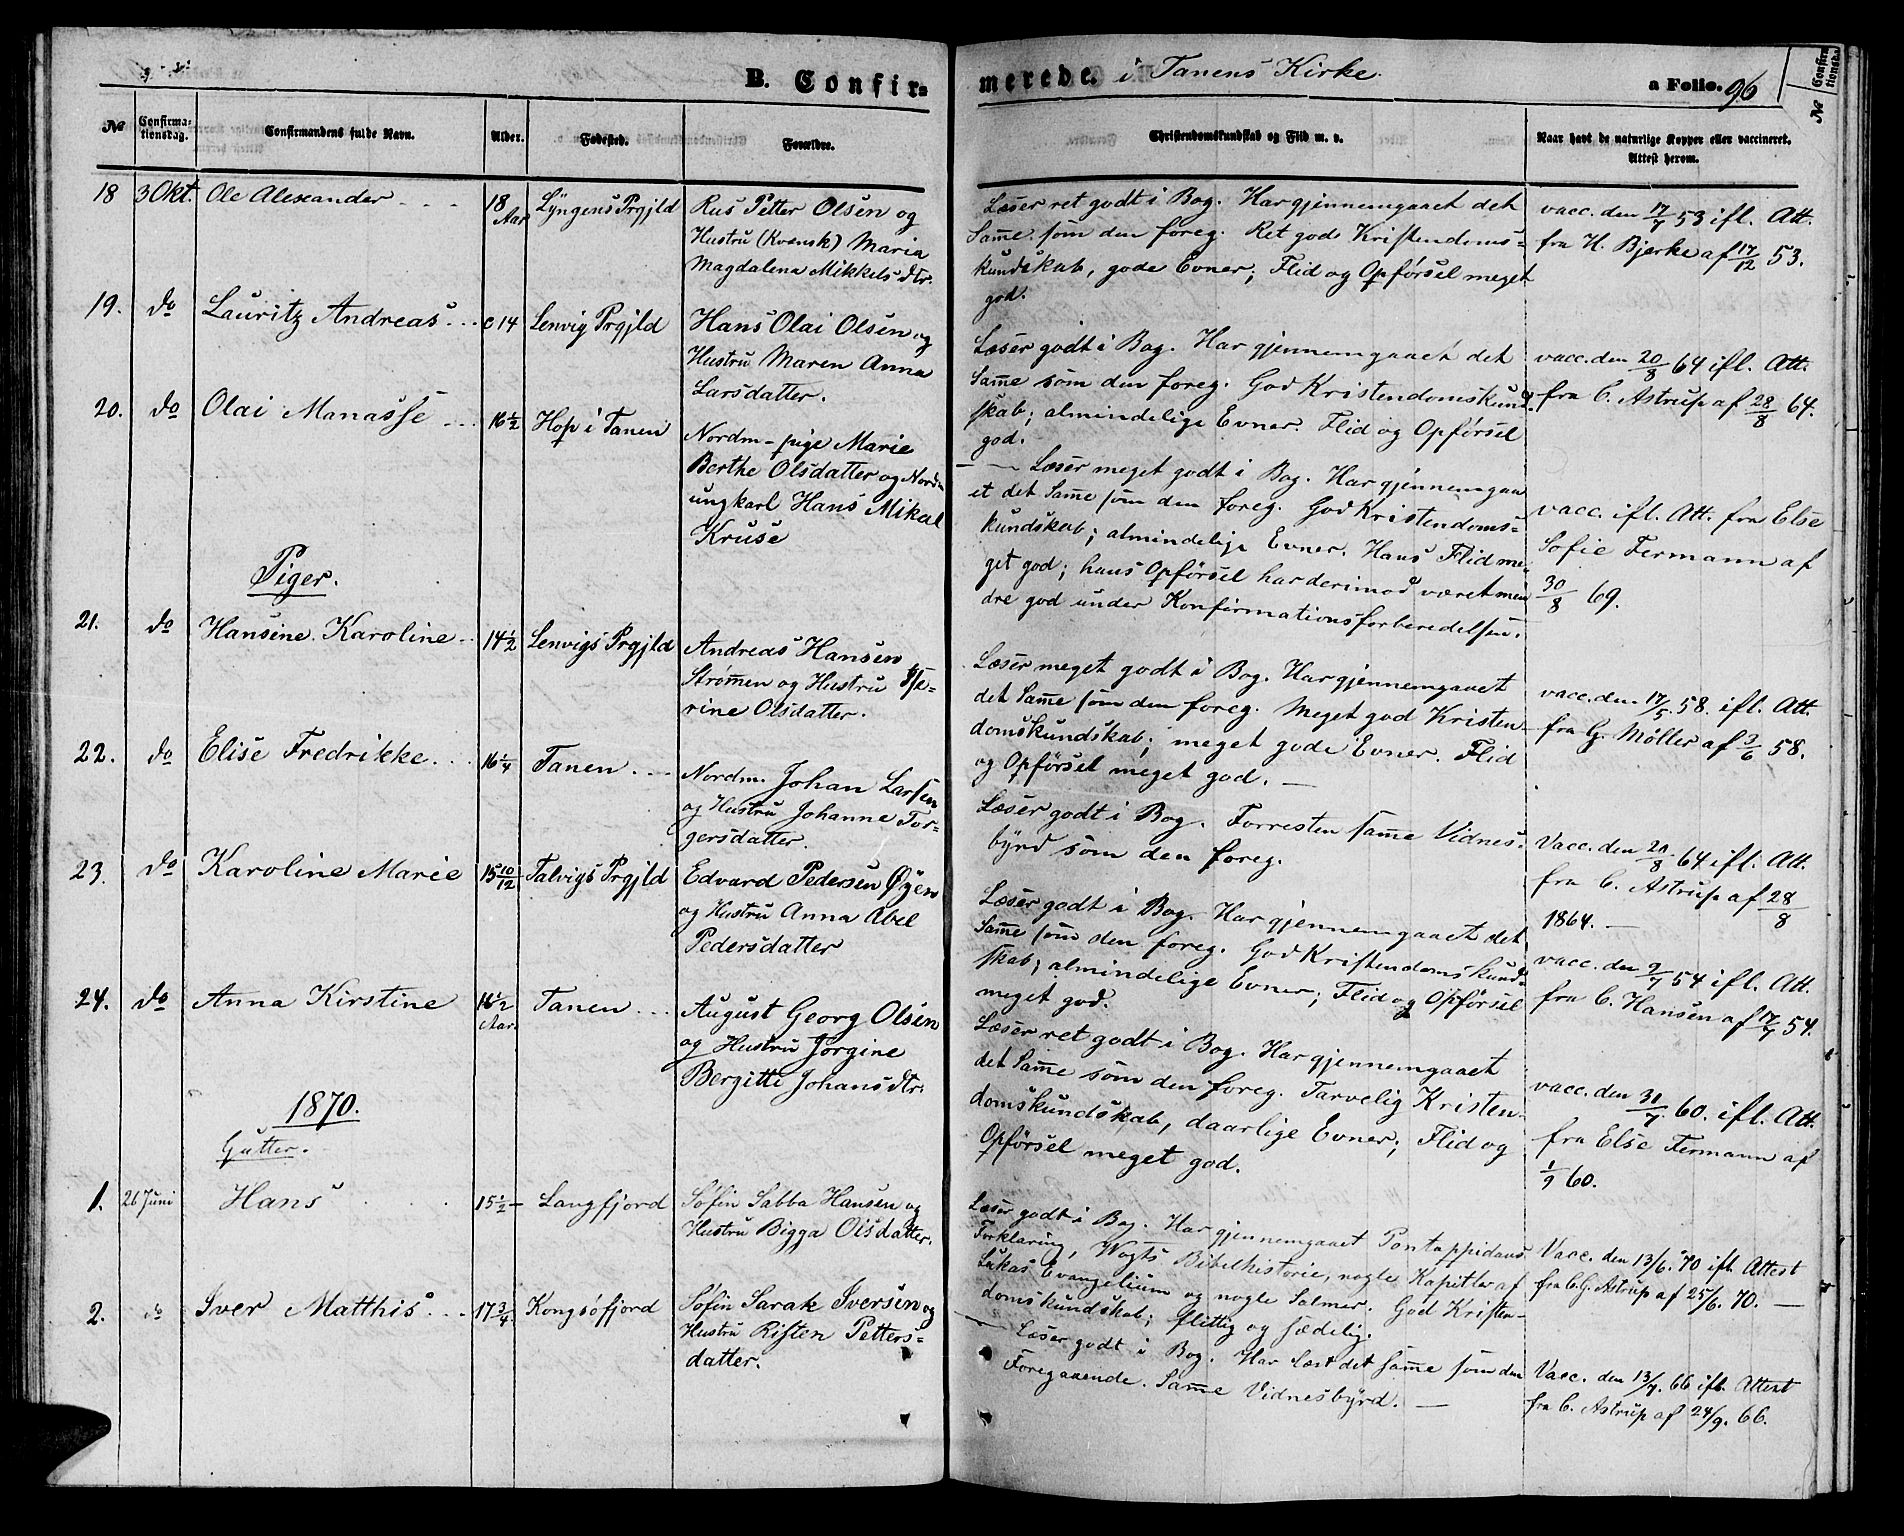 B. Confir=
merede. i Tanens Kirke.
a Folio. 96
№
Confirma-
tionsdag.
Confirmandens fulde Navn.
Alder.
Fødested.
Forældre.
Christendomskundskab og Flid m. v.
Naar havt de naturlige Kopper eller vaccineret.
Attest herom.
18 3 Okt. Ole Alexander 18 Aar Lyngens Prgjld
Rus Petter Olsen og
Hustru (Kvænsk) Maria
Magdalena Mikkelsdtr.
Læser ret godt i Bog. Har gjennemgaaet det
Samme som den foreg. Ret god Kristendoms-
kundskab, gode Evner; Flid og Opførsel meget
god.
vacc. den 17/7 53 ifl. Att.
fra H. Bjerke af 17/12 53.
19. do Lauritz Andreas c 14 Lenvig Prgjld
Hans Olai Olsen og
Hustru Maren Anna
Larsdatter.
Læser godt i Bog. Har gjennemgaaet det
Samme som den foreg. God Kristendomskund-
skab; almindelige Evner. Flid og Opførsel
god.
vacc. den 20/8 64 ifl. Att.
fra C. Astrup af 28/8 64.
20. do Olai Manasse 16 1/2 Hop i Tanen
Nordm-pige Marie
Berthe Olsdatter og Nordm-
ungkarl Hans Mikal
Kruse
— Læser meget godt i Bog. Har gjennemgaa
et det Samme som den foreg. God Kristendoms-
kundskab; almindelige Evner. Hans Flid me-
get god; hans Opførsel har derimod været min
dre god under Konfirmationsforberedelsen.
vacc. ifl. Att. fra Else
Sofie Fermann af
30/8 69.
Piger.
21. do Hansine Karoline 14 1/2 Lenvigs Prgjld
Andreas Hansen
Strømen og Hustru
rine Olsdatter.
Læser meget godt i Bog. Har gjennemgaaet
det Samme som den foreg. Meget god Kristen-
domskundskab; meget gode Evner. Flid
og Opførsel meget god. —
vacc. den 17/5 58. ifl. Att.
fra G. Møller af 3/6 58.
22. do Elise Fredrikke 16 1/4 Tanen
Nordm. Johan Larsen
og Hustru Johanne Tor-
gersdatter.
Læser godt i Bog. Forresten samme Vidnes-
byrd som den foreg.
Vacc. den 20/8 64 ifl. Att.
fra C. Astrup af 28/8
1864. —
23. do Karoline Marie 15 10/12 Talvigs Prgjld
Edvard Pedersen Øyen
og Hustru Anna Abel
Pedersdatter
Læser godt i Bog. Har gjennemgaaet det
Samme som den foreg. God Kristendomskund-
skab; almindelige Evner; Flid og Opførsel
meget god.
vacc. den 9/7 54 ifl. Att.
fra C. Hansen af 17/7 54.
24. do Anna Kirstine 16 1/2 Aar. Tanen
August Georg Olsen
og Hustru Jørgine
Bergitte Johansdtr.
Læser ret godt i Bog. Har gjennemgaaet
det Samme som den foreg. Tarvelig Kristen-
domskundskab, daarlige Evner; Flid og
Opførsel meget god.
vacc. den 31/7 60. ifl. Att.
fra Else Fermann af
1/9 60.
1870.
Gutter.
1. 26 Juni Hans 15 1/2 Langfjord
Søfin Sabba Hansen og
Hustru Bigga Olsdatter.
Læser godt i Bog. Har gjennemgaaet Pontoppidans
Forklaring, Wogts Bibelhistorie, nogle Kapitler af
Lukas Evangelium og nogle Salmer. God Kristen-
domskundskab; flittig og sædelig.
Vacc. den 13/6. 70 ifl. Attest
fra C. G. Astrup af 25/6. 70. —
2. do Iver Matthis 17 3/4 Kongsøfjord
Søfin Sarak Iversen og
Hustru Risten Petters-
datter.
— Læser godt i Bog. Har Læst det samme som den
Foregaaende. Samme Vidnesbyrd. —
Vacc. den 13/7. 66 ifl. Attest
fra C. Astrup af 24/9. 66.